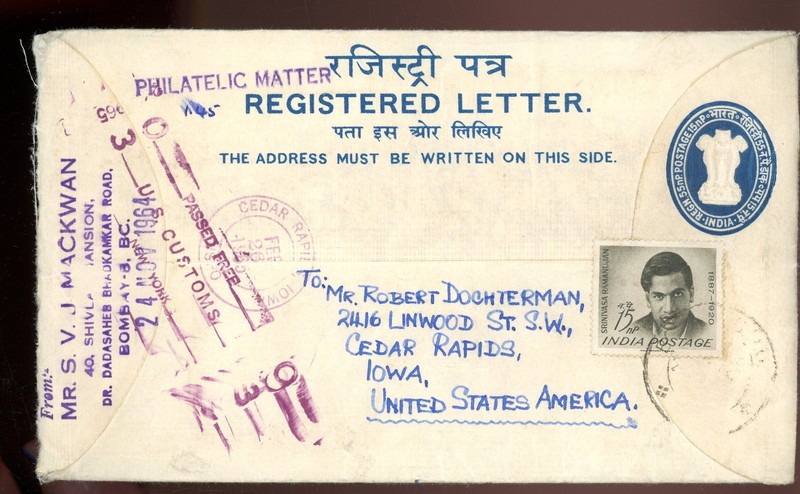 रजिस्ट्री पत्र
PHILATELIC MATTER
REGISTERED LETTER.
पता इस ओर लिखिए
THE ADDRESS MUST BE WRITTEN ON THIS SIDE.
REGN 55nP POSTAGE 15nP
भारत
INDIA
SRINIVASA RAMANUJAN
1887-1920
15
nP
न.पै.
INDIA POSTAGE
From:-
MR. S. V. J MACKWAN
40, SHIVLA ANSION,
DR. DADASAHEB BHADKAMKAR ROAD,
BOMBAY-8, BC.
24 NOV 1964
PASSED FREE
U S CUSTOMS
CEDAR RAPI
FEB
26
IOW
To:-
MR. ROBERT DOCHTERMAN,
2416 LINWOOD ST. S.W.,
CEDAR RAPIDS,
IOWA,
UNITED STATES AMERICA.